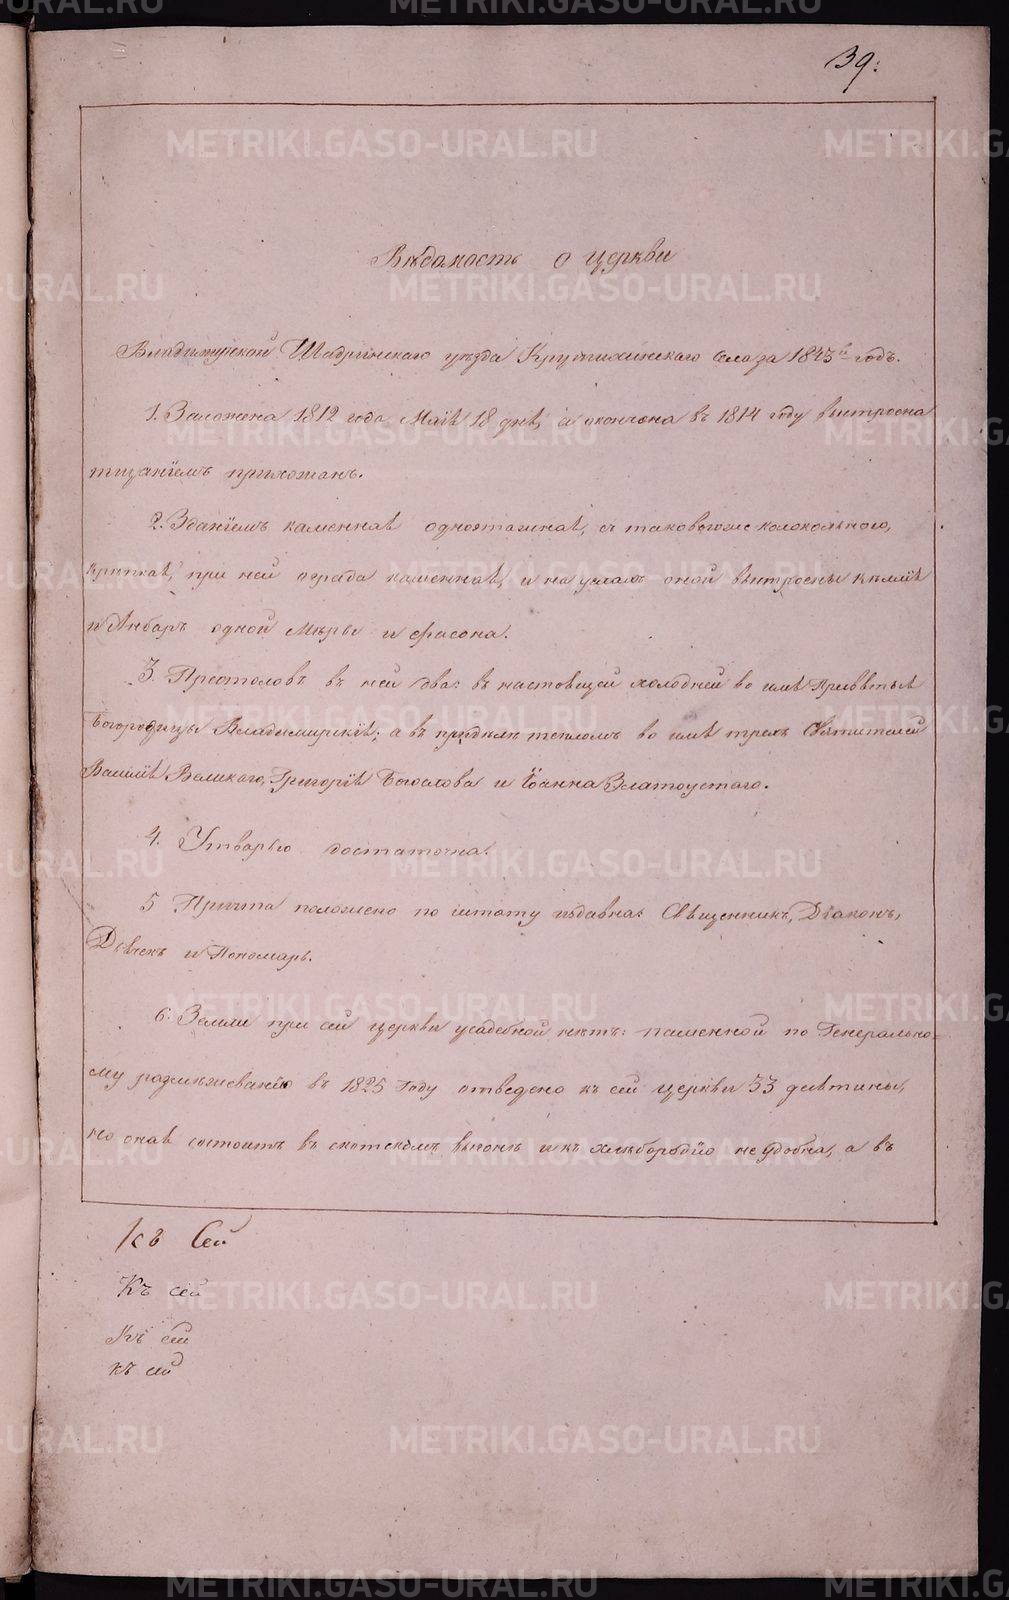 39.
Вѣдомость о церкви
Владимірской Шадринскаго уѣзда Крутихинскаго села за 1843й годъ.
1. Заложена 1812 года Маія 18 дня, а окончена въ 1814 году выстроена
тщаніемъ прихожанъ.
2. Зданіемъ каменная одноэтажная, съ таковоюже колокольнею,
крѣпкая, при ней ограда каменная, и на углахъ оной выстроены кѣлліи
и Анбаръ одной мѣры и фасона.
3. Престоловъ въ ней два: въ настоящей холодной во имя Пресвятыя
Богородицы Владимирскія; а въ придѣлѣ тепломъ во имя трехъ Святителей
Василія Великаго, Григорія Богослова и Іоанна Златоустаго.
4. Утварью достаточна.
5 Причта положено по штату издавна: Священникъ, Діаконъ,
Дьячекъ и Пономарь.
6. Земли при сей церкви усадебной нѣтъ: пашенной по Генерально-
му размѣжеванію въ 1825 году отведено къ сей церкви 33 десятины,
но оная состоитъ въ скотскомъ выгонѣ и къ хлѣбородію не удобна, а въ
Къ Сей
Къ сей
Къ сей
къ сей
METRIKI.GASO-URAL.RU